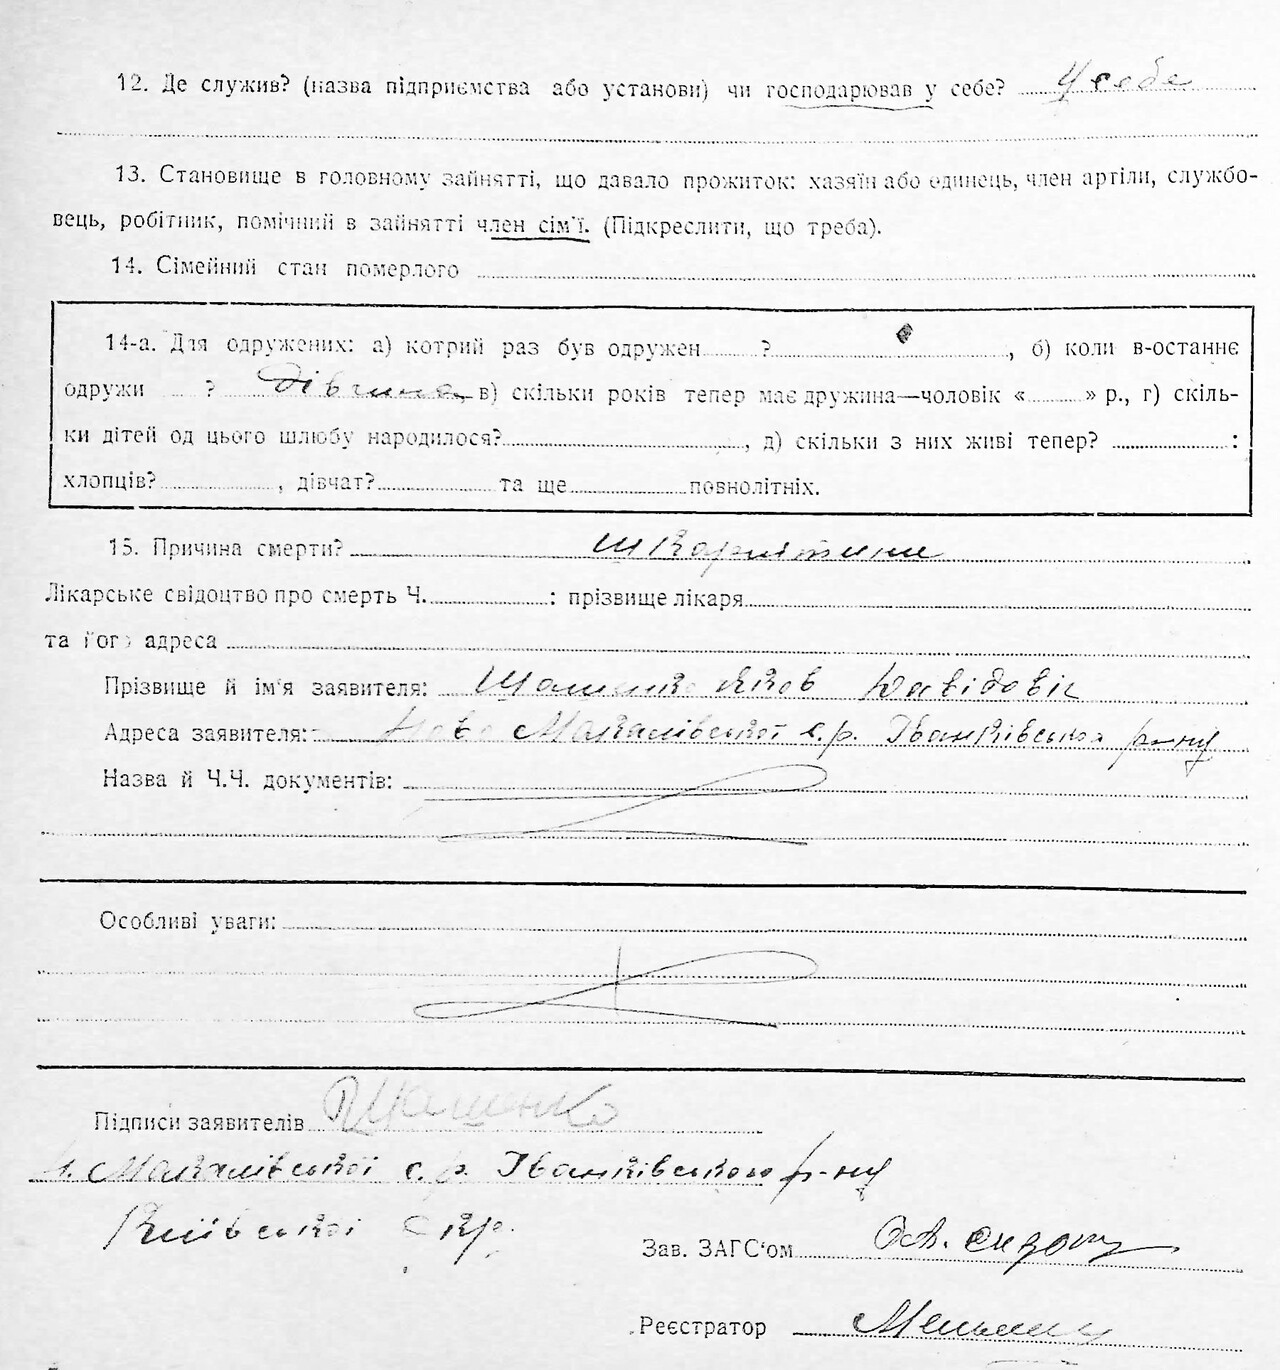 12. Де служив? (назва підприємства або установи) чи господарював у себе? У себе
13. Становище в головному зайнятті, що давало прожиток: хазяїн або одинець, член артіли, службо-
вець, робітник, помічний в зайнятті член сім'ї. (Підкреслити, що треба).
14. Сімейний стан померлого
14-а. Для одружених: а) котрий раз був одружен ? , б) коли в-останнє
одружи ? Дівчина, в) скільки років тепер має дружина—чоловік « » р., г) скіль-
ки дітей од цього шлюбу народилося? , д) скільки з них живі тепер? :
хлопців? , дівчат? та ще повнолітніх.
15. Причина смерти? шкарлятини
Лікарське свідоцтво про смерть Ч. : прізвище лікаря
та його адреса
Прізвище й ім'я заявителя: Яков Давідовіч
Адреса заявителя: Ново Макалівської с.р. Іванківського р-ну
Назва й Ч.Ч. документів:
Особливі уваги:
Підписи заявителів
Н. Макалівської с.р. Іванківського р-ну
Київської окр.
Зав. ЗАГС'ом
Реєстратор